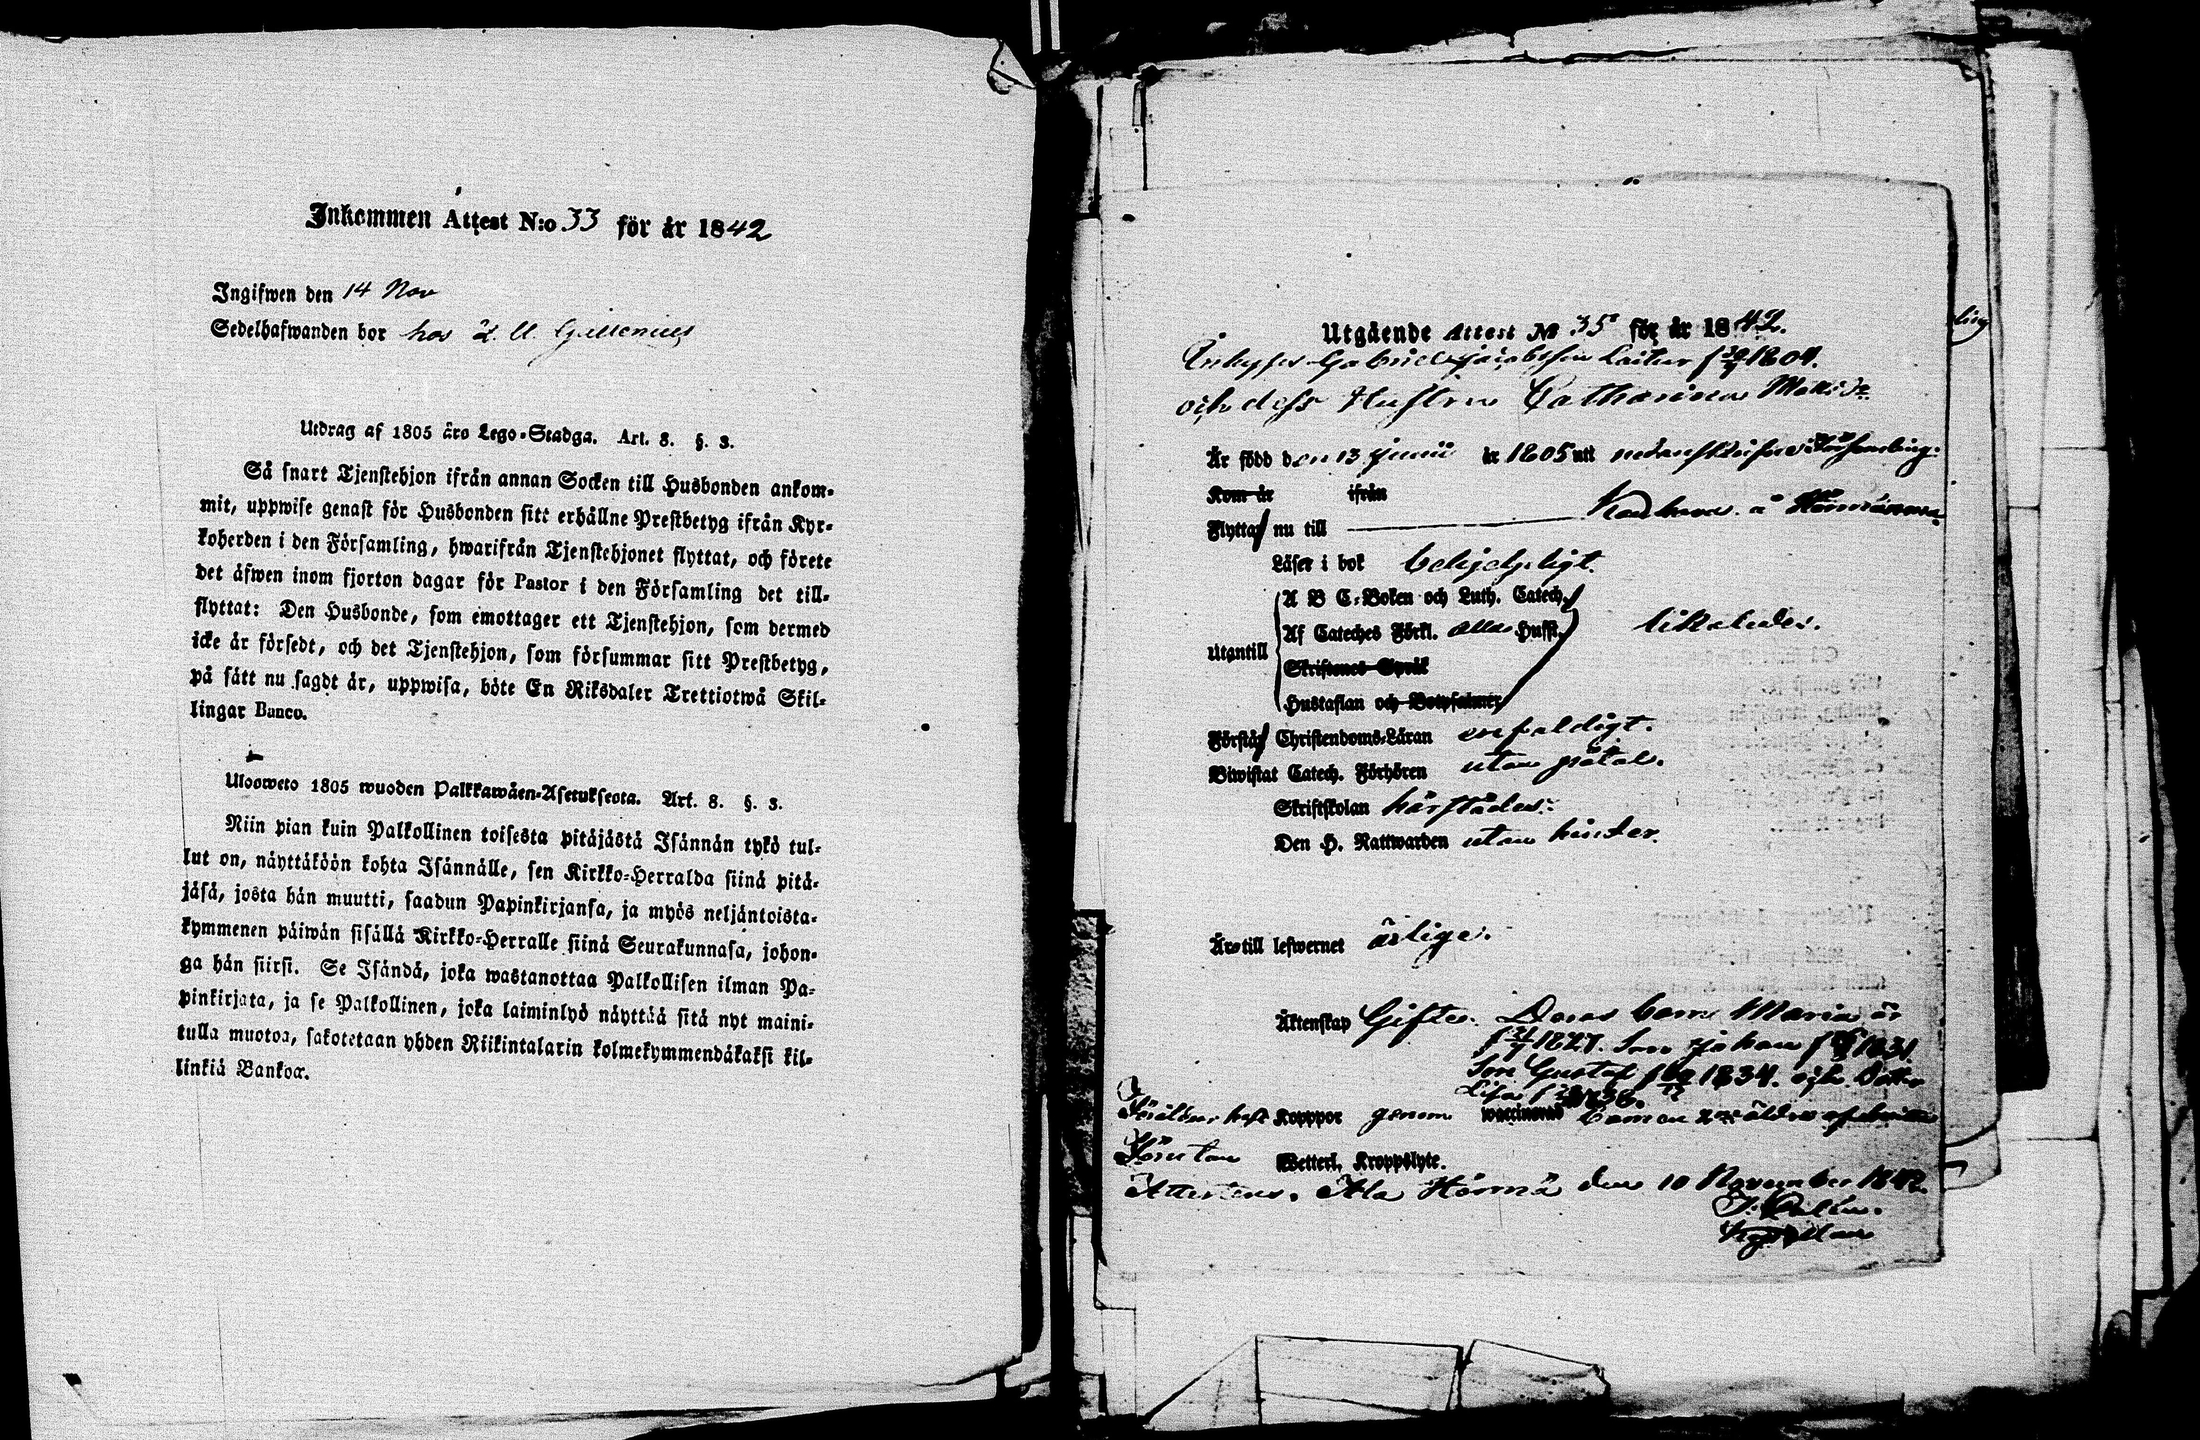 Inkommen Attest N:o 33 för år 1842
Ingifwen den 14 Nov
Sedelhafwanden bor hos
Utdrag af 1805 års Lego-Stadga. Art. 8. §. 3.
Så snart Tjenstehjon ifrån annan Socken till Husbonden ankom-
mit, uppwise genast för Husbonden sitt erhållne Prestbetyg ifrån Kyr-
koherden i den Församling, hwarifrån Tjenstehjonet flyttat, och förete
det äfwen inom fjorton dagar för Pastor i den Församling det till-
flyttat: Den Husbonde, som emottager ett Tjenstehjon, som dermed
icke är försedt, och det Tjenstehjon, som försummar sitt Prestbetyg,
på sätt nu sagdt är, uppwisa, böte En Riksdaler Trettiotwå Skil-
lingar Banco.
Ulosweto 1805 wuoden Palkkawäen-Asetuksesta. Art. 8. §. 3.
Niin pian kuin Palkollinen toisesta pitäjästä Isännän tykö tul-
lut on, näyttäköön kohta Isännälle, sen Kirkko-Herralda siinä pitä-
jäsä, josta hän muutti, saadun Papinkirjansa, ja myös neljäntoista-
kymmenen päiwän sisällä Kirkko-Herralle siinä Seurakunnasa, johon-
ga hän siirsi. Se Isändä, joka wastanottaa Palkollisen ilman Pa-
pinkirjata, ja se Palkollinen, joka laiminlyö näyttää sitä nyt maini-
tulla muotoa, sakotetaan yhden Riikintalarin kolmekymmendäkaksi kil-
linkiä Bankoa.
Utgående Attest № 35 för år 1842.
Inhyses Gabriel Jacobsson 1804.
och dess Hustru Catharina Matts dr
Är född den 13 Junii år 1805 att
Kom år ifrån
Flyttar nu till Kauhava
Läser i bok behjelpligt.
Utantill
A B C-Boken och Luth. Catech.
Af Cateches Förkl. allas Hufst. likaledes.
Skriftenes Språk
Hustaflan och Botpsalmer
Förstår Christendoms-Läran enfaldigt.
Biwistat Catech. Förhören utan påtal.
Skriftskolan härstädes.
Den H. Nattwarden utan hinder.
Är till lefwernet ärlige.
Äktenskap Gifte. Deras barn Maria är
1827. Son Johan 1831
Son Gustaf 1834. och Dotter
Lisa 1836.
Föräldrar haft Koppor genom waccinerad Barnen
Förutan Wetterl. Kroppslyte.
Attesteras. Ala Härmä den 10 November 1842.